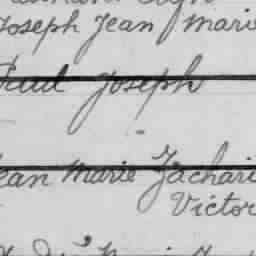 Joseph Jean Marie
Paul Joseph
Jean Marie Zachari
Victor